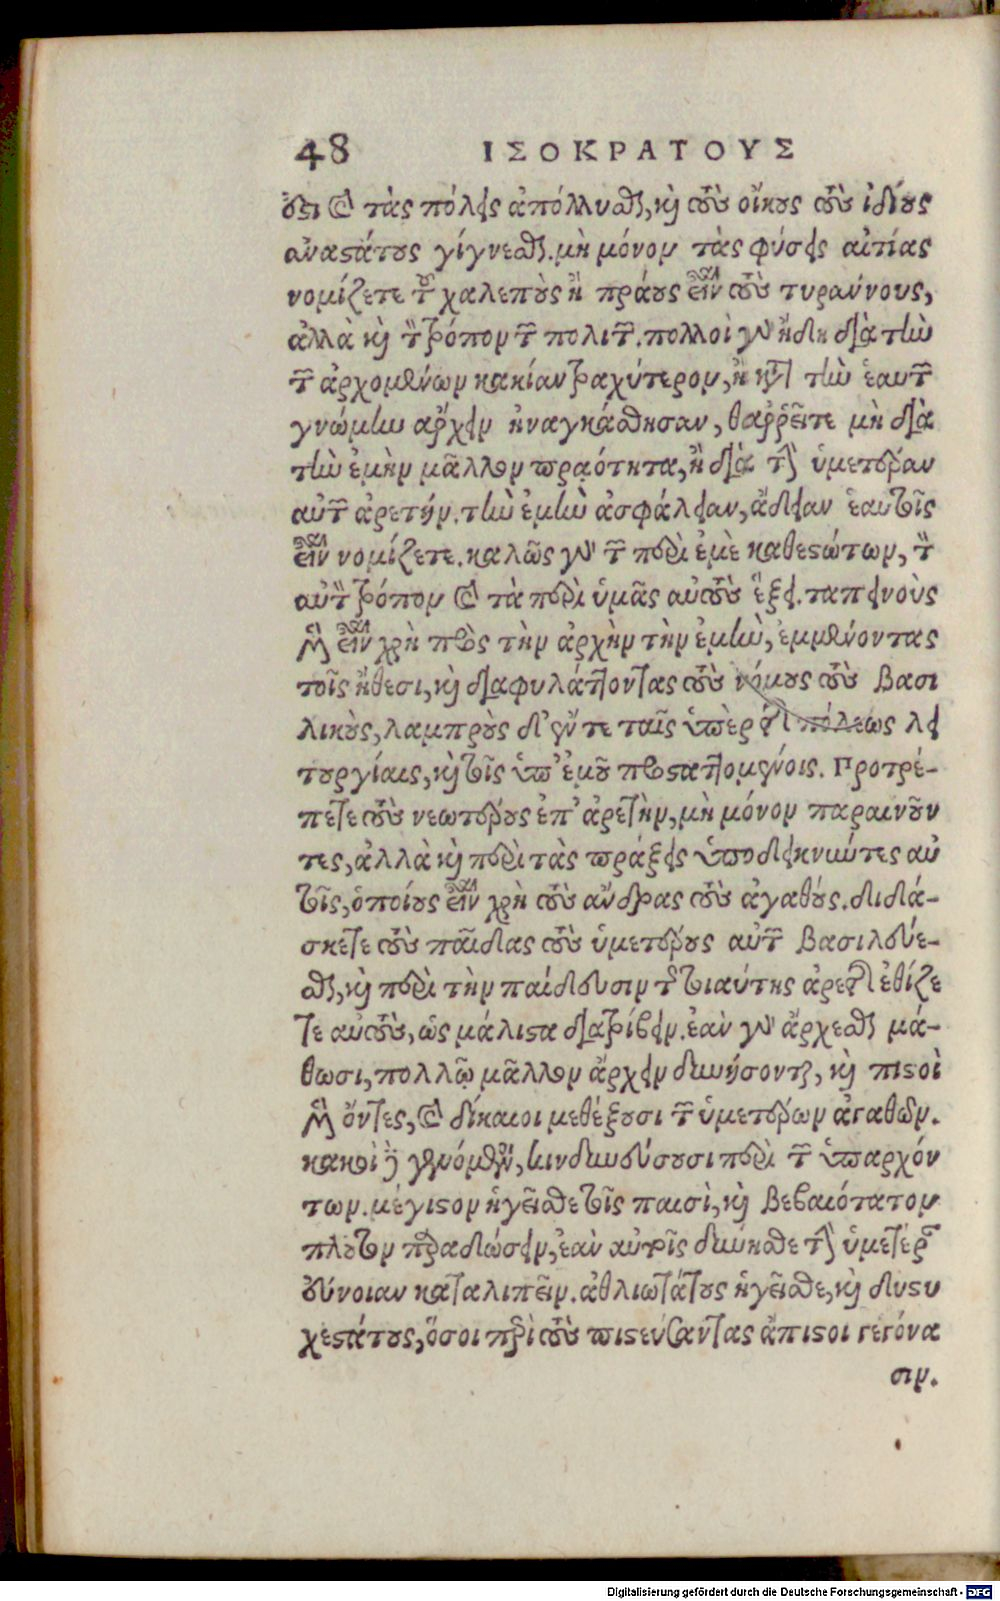 48 ΙΣΟΚΡΑΤΟΥΣ
ουσι καὶ τὰς πόλεις ἀπόλλυσθαι, καὶ τοὺς οἴκους τοὺς ἰδίους
ἀναστάτους γίγνεσθαι. μὴ μόνον τὰς φύσεις αἰτίας
νομίζετε τοῦ χαλεποὺς ἢ πράους εἶναι τοὺς τυράννους,
ἀλλὰ καὶ τὸν τρόπον τῶν πολιτῶν. πολλοὶ γὰρ ἤδη διὰ τὴν
τῶν ἀρχομένων κακίαν τραχύτερον, ἢ κατὰ τὴν ἑαυτῶν
γνώμην ἄρχειν ἠναγκάσθησαν, θαῤῥεῖτε μὴ διὰ
τὴν ἐμὴν μᾶλλον πραότητα, ἢ διὰ τὴν ὑμετέραν
αὐτῶν ἀρετήν. τὴν ἐμὴν ἀσφάλειαν, ἄδειαν ἑαυτοῖς
εἶναι νομίζετε. καλῶς γὰρ τῶν περὶ ἐμὲ καθεστώτων, τὸν
αὐτὸν τρόπον καὶ τὰ περὶ ὑμᾶς αὐτοὺς ἕξει. ταπεινοὺς
μὲν εἶναι χρὴ πρὸς τὴν ἀρχὴν τὴν ἐμὴν, ἐμμένοντας
τοῖς ἤθεσι, καὶ διαφυλάττοντας τοὺς νόμους τοὺς βασι
λικοὺς, λαμπροὺς δ' ἔν τε ταῖς ὑπὲρ τῆς πόλεως λει
τουργίαις, καὶ τοῖς ὑπ' ἐμοῦ προσταττομένοις. Προτρέ-
πετε τοὺς νεωτέρους ἐπ' ἀρετὴν, μὴ μόνον παραινοῦν
τες, ἀλλὰ καὶ περὶ τὰς πράξεις ὑποδεικνύντες αὐ
τοῖς, ὁποίους εἶναι χρὴ τοὺς ἄνδρας τοὺς ἀγαθούς. διδά-
σκετε τοὺς παῖδας τοὺς ὑμετέρους αὐτῶν βασιλεύε-
σθαι, καὶ περὶ τὴν παίδευσιν τὴν τοιαύτης ἀρετῆς ἐθίζε
τε αὐτοὺς, ὡς μάλιστα διατρίβειν. ἐὰν γὰρ ἄρχεσθαι μά-
θωσι, πολλῷ μᾶλλον ἄρχειν δυνήσονται, καὶ πιστοὶ
μὲν ὄντες, καὶ δίκαιοι μεθέξουσι τῶν ὑμετέρων ἀγαθῶν.
κακοὶ δὲ γενόμενοι, κινδυνεύσουσι περὶ τῶν ὑπαρχόν
των. μέγιστον ἡγεῖσθε τοῖς παισὶ, καὶ βεβαιότατον
πλοῦτον παραδώσειν, ἐὰν αὐτοῖς δύνησθε τὴν ὑμετέραν
εὔνοιαν καταλιπεῖν. ἀθλιωτάτους ἡγεῖσθε, καὶ δυστυ
χεστάτους, ὅσοι περὶ τοὺς πιστεύσαντας ἄπιστοι γεγόνα
σιν.
Digitalisierung gefördert durch die Deutsche Forschungsgemeinschaft - DFG